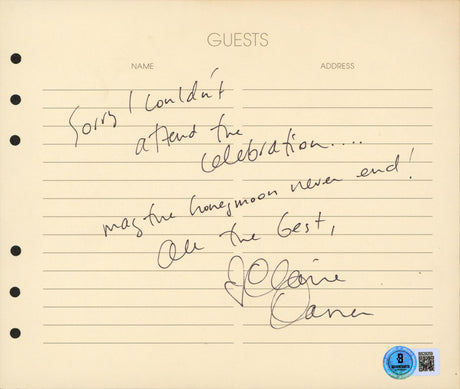 GUESTS
NAME ADDRESS
Sorry I couldn't
attend the
celebration....
may the honeymoon never end!
All the best,